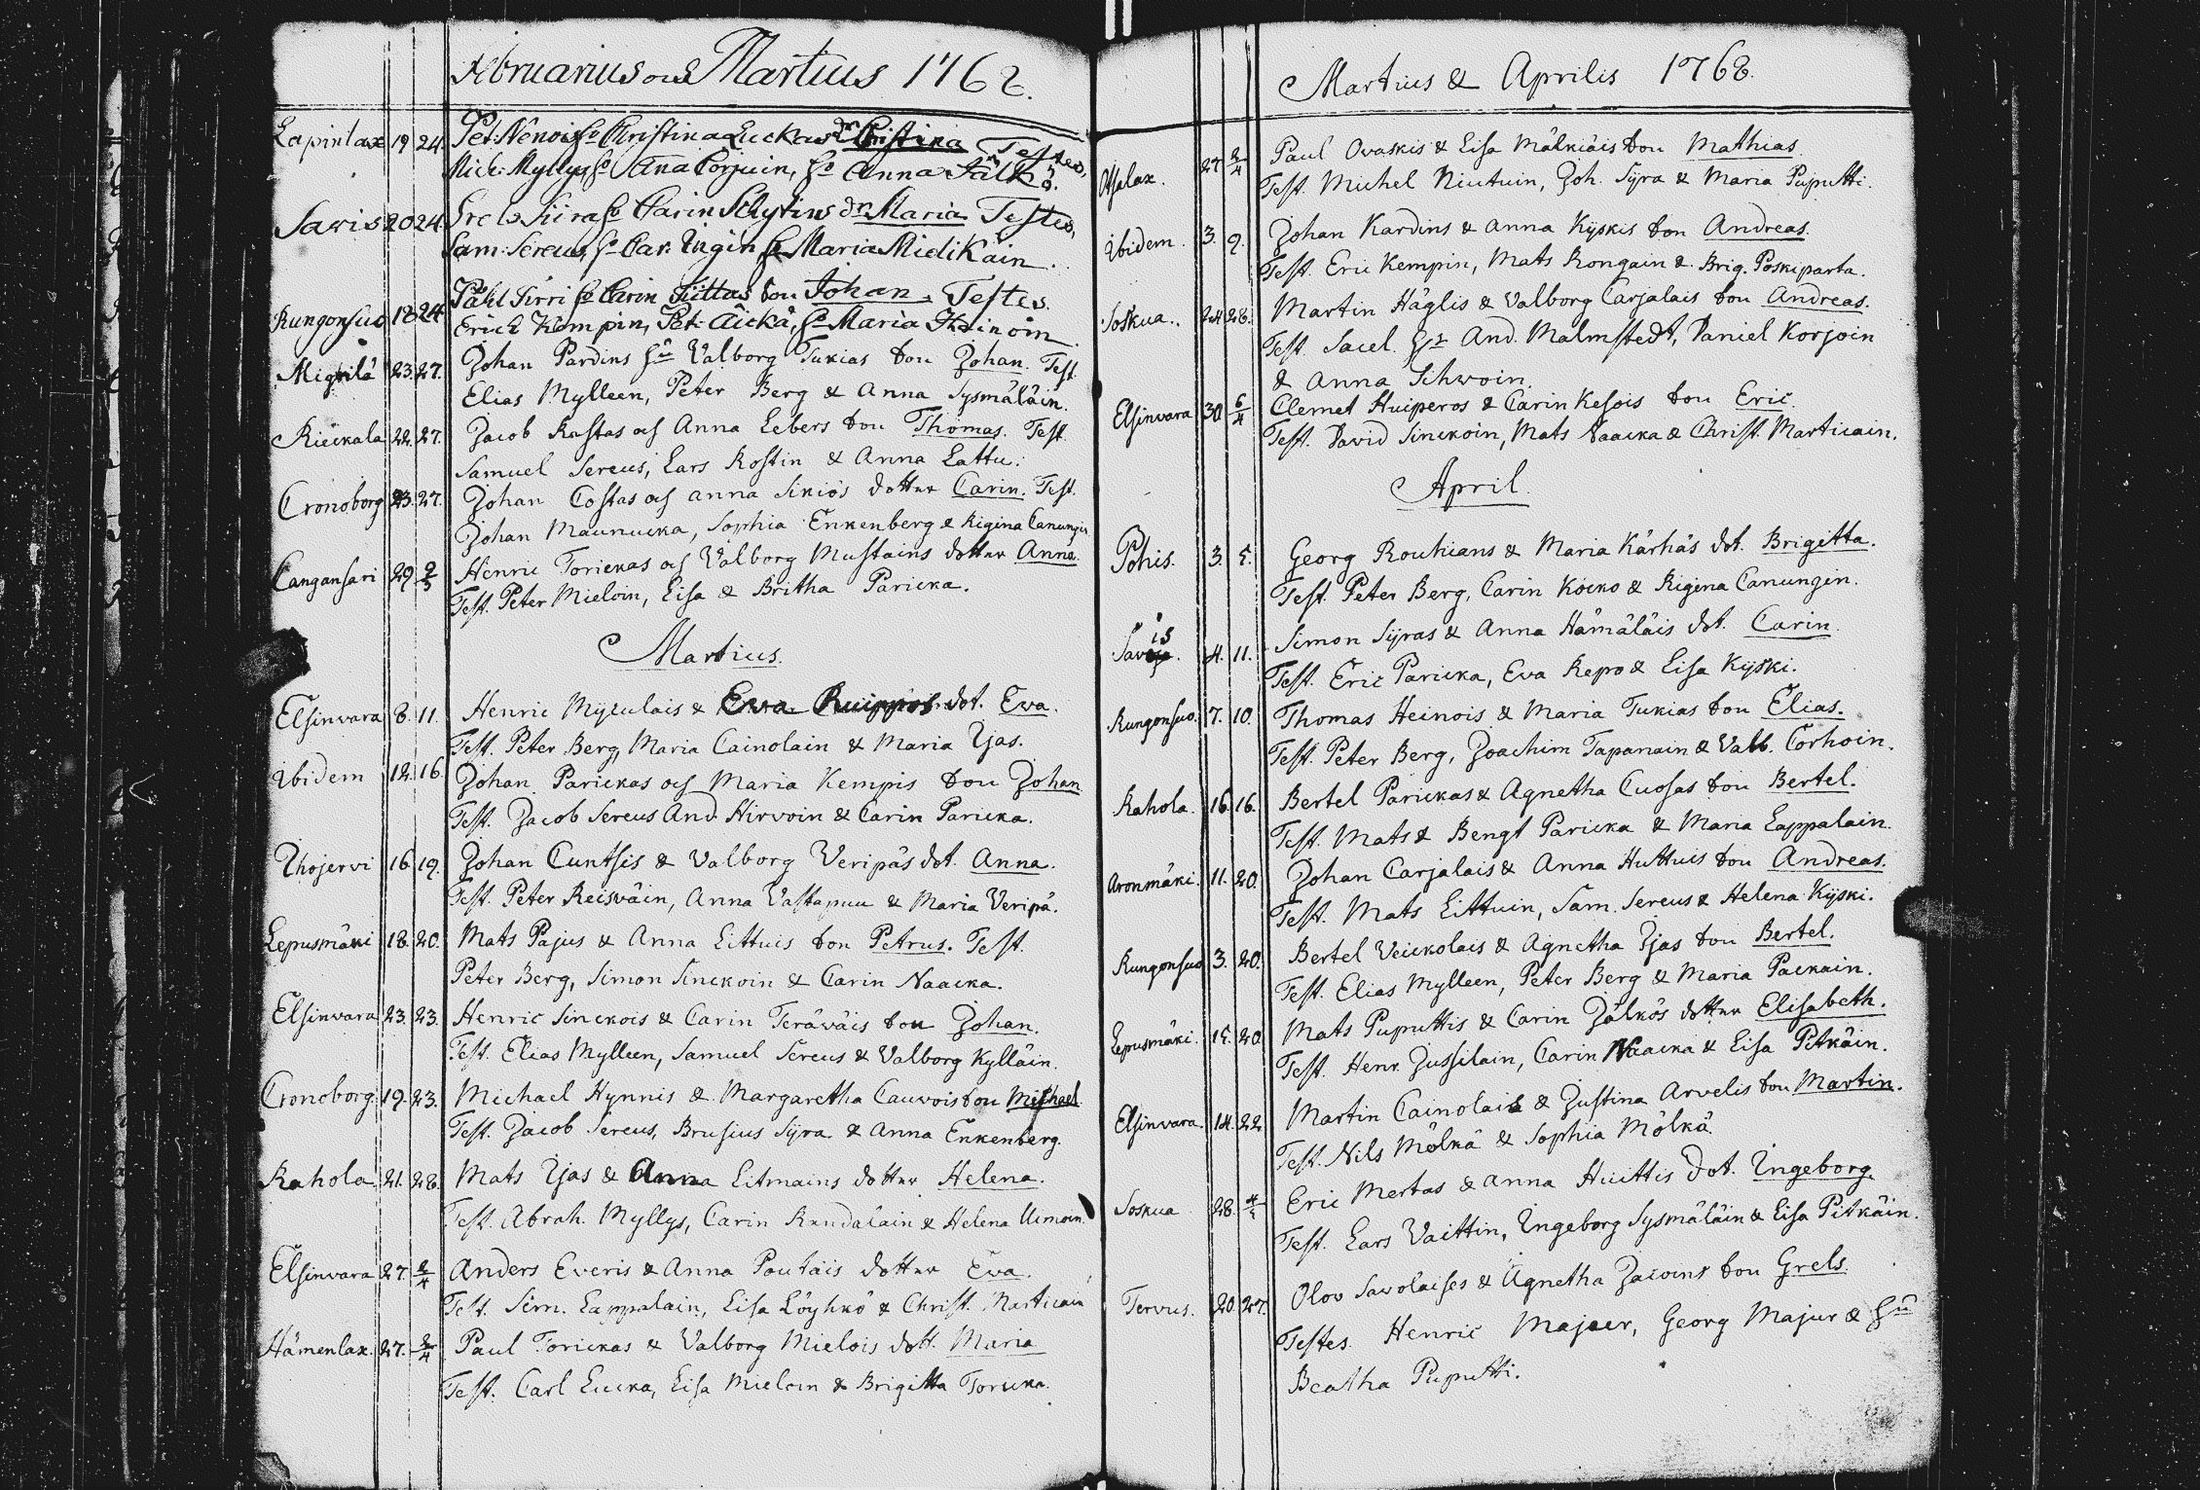 Februarius och Martius 1768.
Lapinlax 19 24. Pet: Nenois Christina Luckas dr Christina Testes,
Mich: Myllys, Anna Corpuin, Anna Falk
Savis 20 24. Grels Carin Maria Testes,
Sam: Sereus, Car. Ungin Maria Mielikäin.
Rungonsuo 18 24. Påhl Sirri Carin Sittas Son Johan. Testes
Erich Kempin, Pet: Äickä, Maria Heinoin
Migrilä 23. 27. Johan Pardins Valborg Tukias Son Johan. Test.
Elias Mylleen, Peter Berg & Anna Sysmäläin.
Rieckala 22. 27. Jacob Rastas och Anna Lebers Son Thomas. Test.
Samuel Sereus, Lars Rostin & Anna Lattu.
Cronoborg 23. 27. Johan Costas och Anna Sikiös dotter Carin. Test.
Johan Maunucka, Sophia Enkenberg & Rigina Canungin
Cangansari 29. 2/3 Henric Torickas och Valborg Mustains dotter Anna.
Test. Peter Mieloin, Lisa & Britha Paricka.
Martius.
Elsinvara 8. 11. Henric Myculais & Eva Ruippos dot. Eva.
Test. Peter Berg, Maria Cainolain & Maria Ijas.
Ibidem 12. 16. Johan Parickas och Maria Kempis Son Johan
Test. Jacob Sereus And. Hirvoin & Carin Paricka.
Ihojervi 16. 19. Johan Cuntsis & Valborg Veripäs dot. Anna.
Test. Peter Reisväin, Anna Vastapuu & Maria Veripä.
Lepusmäki 18. 20. Mats Pajus & Anna Littuis Son Petrus. Test.
Peter Berg, Simon Sinckoin & Carin Naacka.
Elsinvara 23. 23. Henric Sinckois & Carin Teräväis Son Johan.
Test. Elias Mylleen, Samuel Sereus & Valborg Kylläin.
Cronoborg 19. 23. Michael Hynnis & Margaretha Cauvois Son Michael
Test. Jacob Sereus, Brusius Syra & Anna Enkenberg.
Rahola 21. 28. Mats Ijas & Anna Litmains dotter Helena.
Test. Abrah. Myllys, Carin Rundalain & Helena
Elsinvara 27. 2/4 Anders Everis & Anna Poutais dotter Eva.
Test. Sim. Lappalain, Lisa Löyhkö & Christ. Marticain
Hämenlax. 27. 2/4 Paul Torickas & Valborg Mielois dott. Maria
Test. Carl Lucka, Lisa Mieloin & Brigitta Toricka.
Martius & Aprilis 1768.
Otsalax. 27 2/4 Paul Ovaskis & Lisa Mälkiäis Son Mathias.
Test. Michel Niutuin, Joh. Syra & Maria Puputti.
Ibidem. 3. 9. Johan Kardins & Anna Kyskis Son Andreas.
Test. Eric Kempin, Mats Rongain & Brig. Poskiparta.
Soskua. 24 28. Martin Häglis & Valborg Carjalais Son Andreas.
Test. Sacel. Hr And. Malmstedt, Daniel Korjoin
& Anna Sihvoin.
Elsinvara 30 6/4 Clemet Huiperos & Carin Kesois Son Eric.
Test. David Sinckoin, Mats Naacka & Christ. Marticain.
April.
Pohis. 3. 5. Georg Routians & Maria Kärhäs dot. Brigitta.
Test. Peter Berg, Carin Kocko & Rigina Canungin.
Savis. 4. 11. Simon Syras & Anna Hämäläis dot. Carin.
Test. Eric Paricka, Eva Repo & Lisa Kyski.
Rungonsuo. 7. 10. Thomas Heinois & Maria Tukias Son Elias.
Test. Peter Berg, Joachim Tapanain & Valb. Corhoin.
Rahola. 16. 16. Bertel Parickas & Agnetha Cuosas Son Bertel.
Test. Mats & Bengt Paricka & Maria Lappalain.
Aronmäki. 11. 20. Johan Carjalais & Anna Huttuis Son Andreas.
Test. Mats Littuin, Sam. Sereus & Helena Kyski.
Rungonsuo 3. 20. Bertel Veickolais & Agnetha Ijas Son Bertel.
Test. Elias Mylleen, Peter Berg & Maria Packain.
Lepusmäki. 15. 20. Mats Puputtis & Carin Jälkös dotter Elisabeth.
Test. Henr. Jussilain, Carin Naacka & Lisa Pitkäin.
Elsinvara. 14. 22 Martin Cainolais & Justina Arvelis Son Martin.
Test. Nils Mölkä & Sophia Mölkä.
Soskua 28. 4/5 Eric Mertas & Anna Huittis dot. Ingeborg.
Test. Lars Vaittin, Ingeborg Sysmäläin & Lisa Pitkäin.
Tervus. 20 27. Olov Savolaises & Agnetha Jacoins Son Grels.
Testes. Henric Majuer, Georg Majur & Hu
Beatha Puputti.